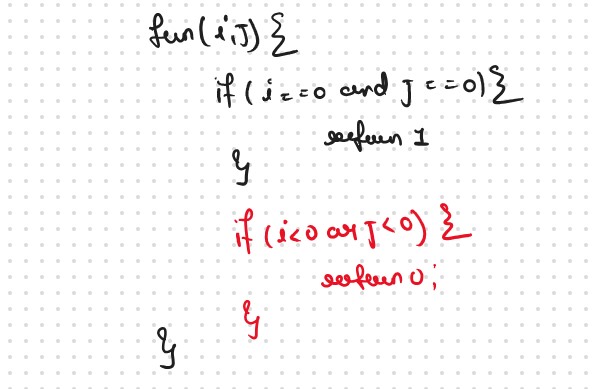 fun(i,J){
if(i==0 and J==0){
return 1
}
if(i<0 or J<0){
return 0;
}
}